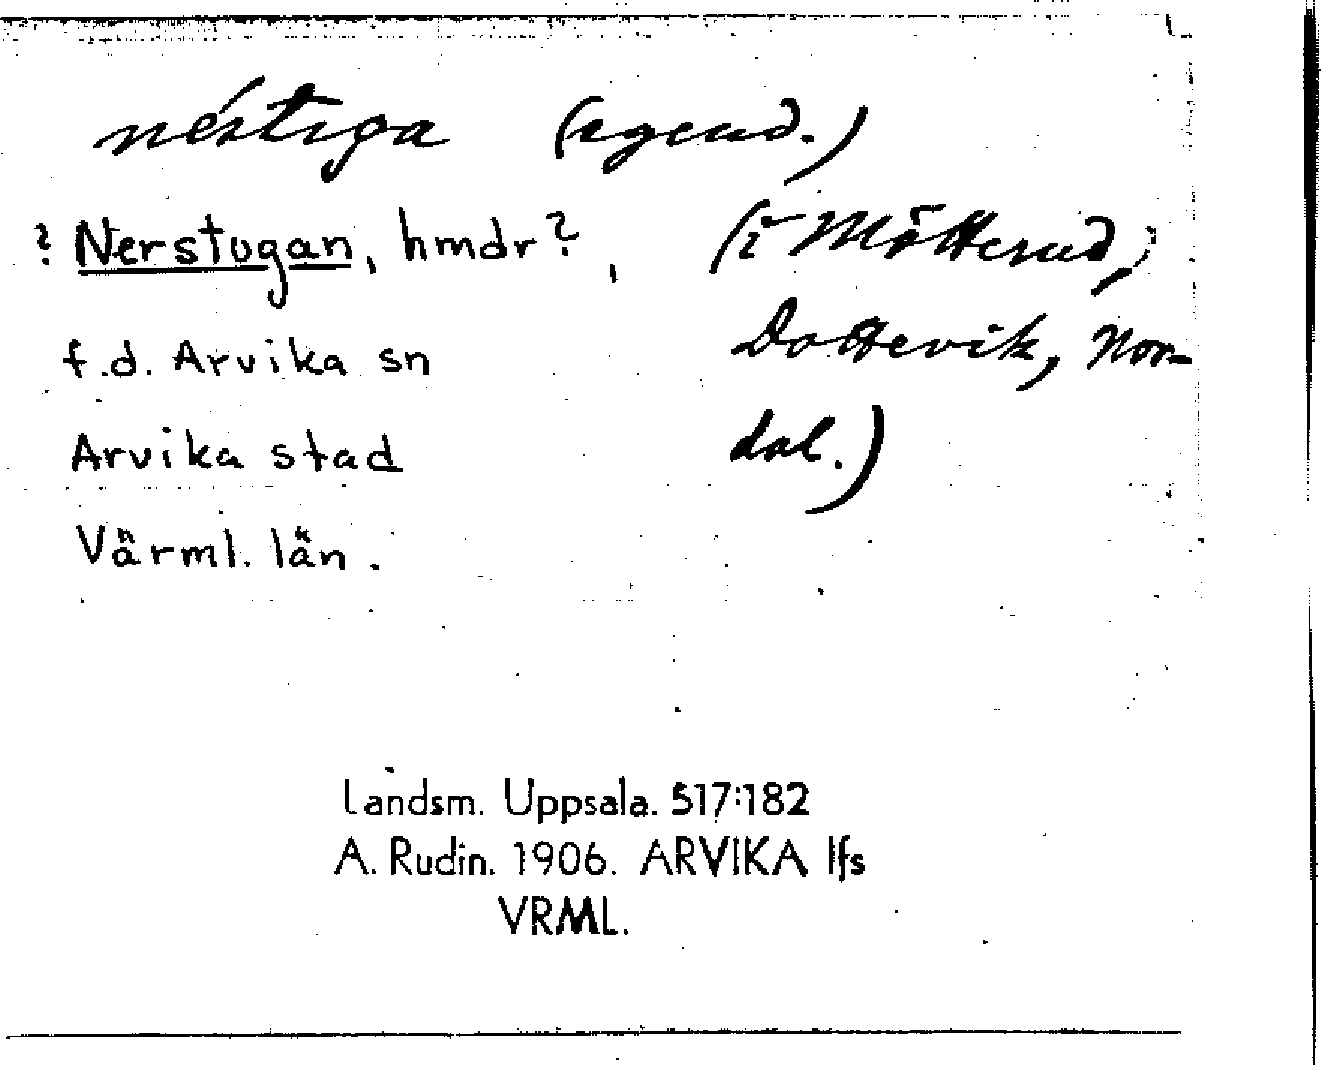 néstuga (egend.)
? Nerstugan, hmdr?, (i Mötterud,
f.d. Arvika sn Dottevik, Nor-
Arvika stad dal.)
Värml. län.
Landsm. Uppsala. 517:182
A. Rudin. 1906. ARVIKA lfs
VRML.